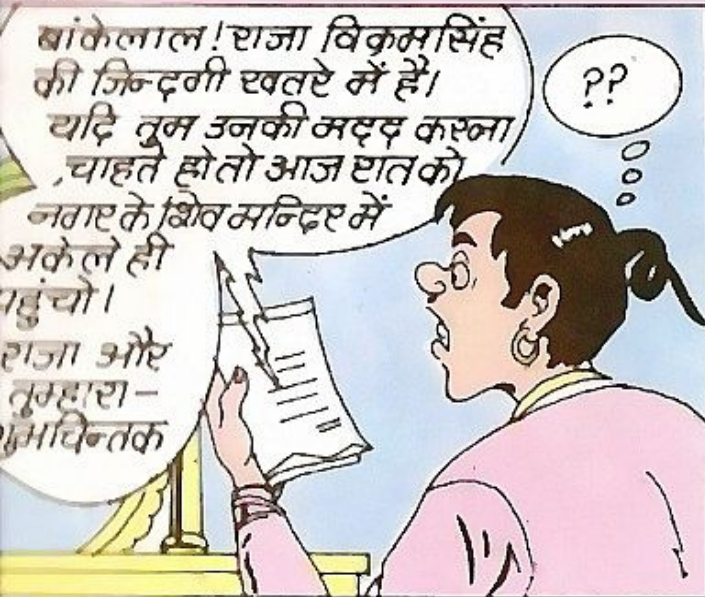 बांकेलाल! राजा विक्रमसिंह
की जिन्दगी खतरे में है।
यदि तुम उनकी मदद करना
चाहते हो तो आज रात को
नगर के शिव मन्दिर में
अकेले ही
पहुंचो।
राजा और
तुम्हारा -
शुभचिन्तक
??